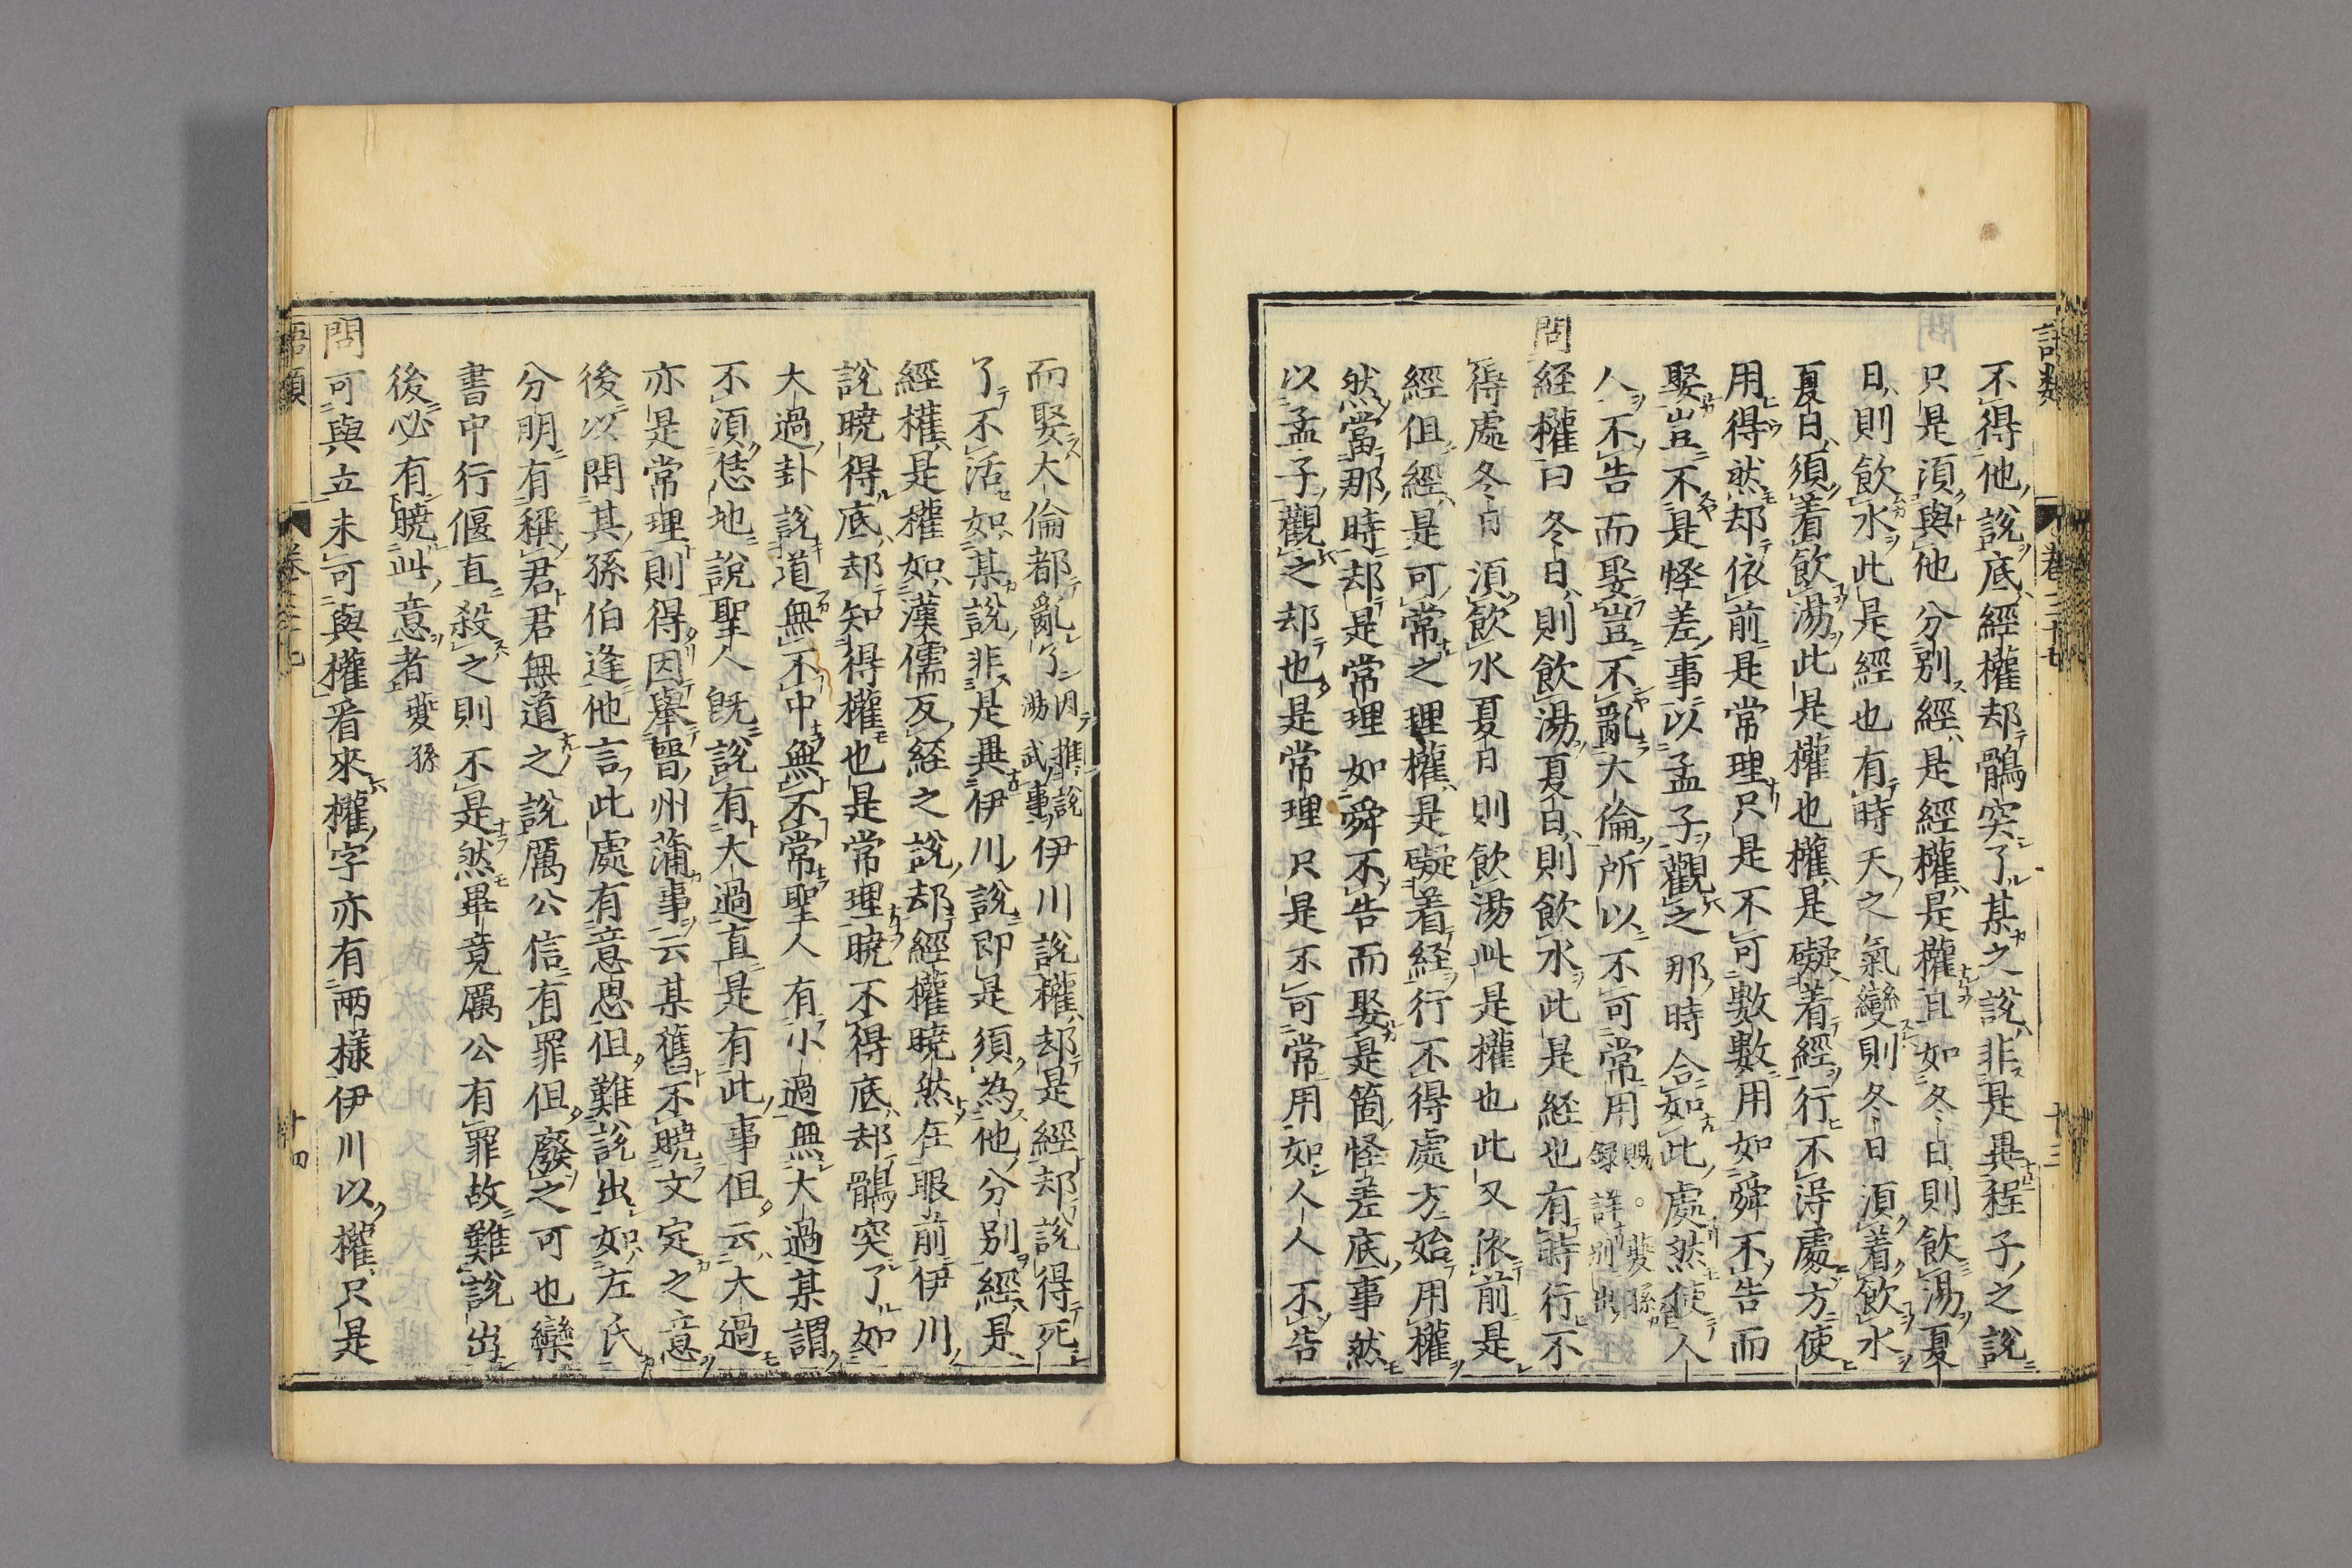 語類 卷三十七 十三
不得他說底經權却鶻突了某之說非是異程子之說
只是湏與他分別經是經權是權且如冬日則飲湯夏
日則飲水此是經也有時天之氣變則冬日湏着飲水
夏日須着飲湯此是權也權是礙着經行不淂處方使
用得然却依前是常理只是不可數數用如舜不告而
娶豈不是怪差事以孟子觀之那時合如此處然使人
人不告而娶豈不亂大倫所以不可常用賜。夔孫錄詳別出
問經權曰冬日則飲湯夏日則飲水此是経也有時行不
得處冬日湏飲水夏日則飲湯此是權也此又依前是
經但經是可常之理權是礙着経行不得處方始用權
然當那時却是常理如舜不告而娶是箇怪差底事然
以孟子觀之却也是常理只是不可常用如人人不告
而娶大倫都亂了因推說湯武事伊川說權却是經却說得死
了不活如某說非是異伊川說即是須為他分別經是
經權是權如漢儒反経之說却經權曉然在眼前伊川
說曉得底却知得權也是常理曉不得底却鶻突了如
大過卦說道無不中無不常聖人有小過無大過某謂
不湏恁地說聖人既說有大過直是有此事但云大過
亦是常理則得因舉晉州蒲事云某舊不曉文定之意
後以問其孫伯逢他言此處有意思但難說出如左氏
分明有稱君君無道之說厲公信有罪但廢之可也欒
書中行偃直殺之則不是然畢竟厲公有罪故難說出
後必有曉此意者夔孫
問可與立未可與權看來權字亦有兩樣伊川以權只是
語類 卷三十七 十四